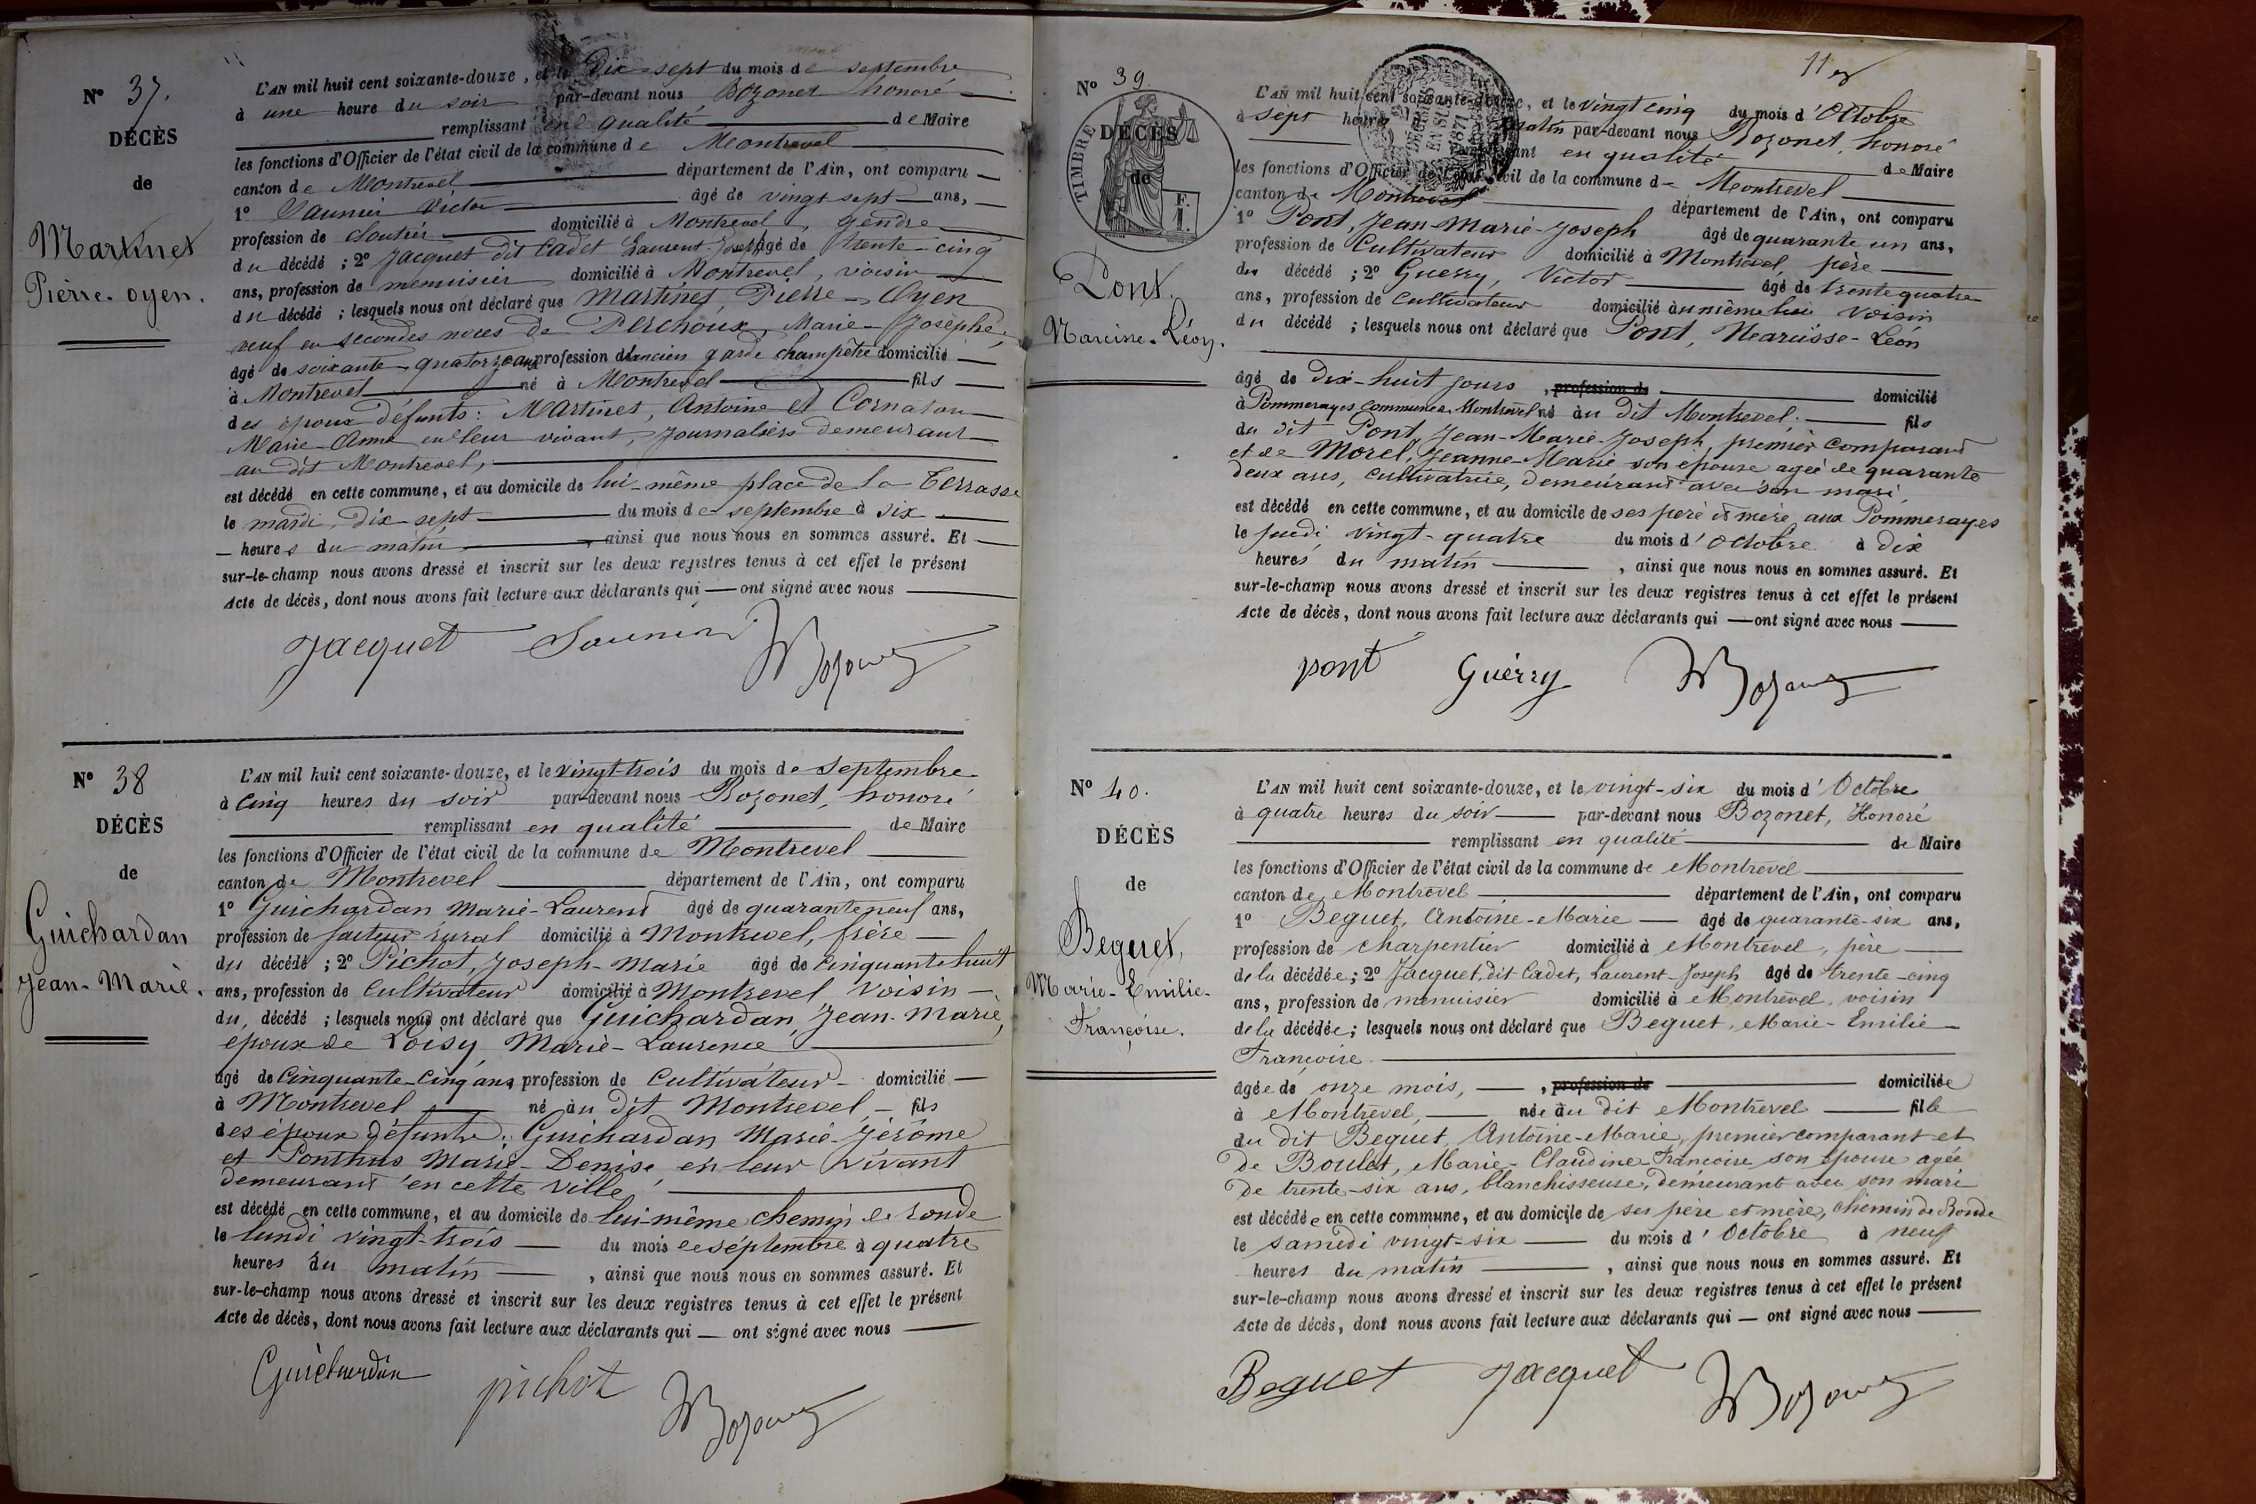 N° 37.
DÉCÈS
de
Martinet
Pierre-oyen.
L'AN mil huit cent soixante-douze, et le Dix-sept du mois de septembre
à une heure du soir par-devant nous Bozonet honoré
remplissant en qualité de Maire
les fonctions d'Officier de l'état civil de la commune de Montrevel
canton de Montrevel département de l'Ain, ont comparu
1° Saunier Victor âgé de vingt sept ans,
profession de cloutier domicilié à Montrevel, gendre
du décédé ; 2° Jacquet dit Cadet Laurent-Joseph âgé de trente-cinq
ans, profession de menuisier domicilié à Montrevel, voisin
du décédé ; lesquels nous ont déclaré que Martinet, Pierre-Oyen
veuf en secondes noces de Perchoux, Marie-Josèphe,
âgé de soixante-quatorze ans profession d'ancien garde champêtre domicilié
à Montrevel né à Montrevel fils
des époux défunts : Martinet, Antoine et Cornaton
Marie-Anne en leur vivant, journaliers demeurant
au dit Montrevel,
est décédé en cette commune, et au domicile de lui-même place de la Terrasse
le mardi, dix-sept du mois de septembre à six
heures du matin, ainsi que nous nous en sommes assuré. Et
sur-le-champ nous avons dressé et inscrit sur les deux registres tenus à cet effet le présent
Acte de décès, dont nous avons fait lecture aux déclarants qui ont signé avec nous
Jacquet Saunier Bozonet
N° 38
DÉCÈS
de
Guichardan
Jean-Marie.
L'AN mil huit cent soixante-douze, et le vingt-trois du mois de septembre
à cinq heures du soir par-devant nous Bozonet, honoré
remplissant en qualité de Maire
les fonctions d'Officier de l'état civil de la commune de Montrevel
canton de Montrevel département de l'Ain, ont comparu
1° Guichardan Marie-Laurent âgé de quarante neuf ans,
profession de facteur rural domicilié à Montrevel, frère
du décédé ; 2° Pichot, Joseph-Marie âgé de cinquante huit
ans, profession de cultivateur domicilié à Montrevel voisin
du décédé ; lesquels nous ont déclaré que Guichardan, Jean-Marie,
époux de Loisy Marie-Laurence
âgé de cinquante-cinq ans profession de cultivateur domicilié
à Montrevel né au dit Montrevel, fils
des époux défunts : Guichardan Marie-Jérôme
et Ponthus Marie-Denise en leur vivant
demeurant en cette ville,
est décédé en cette commune, et au domicile de lui-même chemin de ronde
le lundi vingt-trois du mois de septembre à quatre
heures du matin, ainsi que nous nous en sommes assuré. Et
sur-le-champ nous avons dressé et inscrit sur les deux registres tenus à cet effet le présent
Acte de décès, dont nous avons fait lecture aux déclarants qui ont signé avec nous
Guichardan pichot Bozonet
N° 39.
TIMBRE
DÉCÈS
de
F. 1.
Pont.
Narcisse-Léon.
L'AN mil huit cent soixante-douze, et le vingt cinq du mois d'Octobre
à sept heures matin par-devant nous Bozonet, honoré
en qualité de Maire
les fonctions d'Officier de l'état civil de la commune de Montrevel
canton de Montrevel département de l'Ain, ont comparu
1° Pont, Jean-Marie-Joseph âgé de quarante un ans,
profession de Cultivateur domicilié à Montrevel, père
du décédé ; 2° Guerry, Victor âgé de trente quatre
ans, profession de cultivateur domicilié au même lieu voisin
du décédé ; lesquels nous ont déclaré que Pont, Narcisse-Léon
âgé de dix-huit jours, profession de domicilié
à Pommerayes commune de Montrevel né au dit Montrevel, fils
du dit Pont, Jean-Marie-Joseph, premier comparant
et de Morel, Jeanne-Marie son épouse agée de quarante
deux ans, cultivatrice, demeurant avec son mari,
est décédé en cette commune, et au domicile de ses père et mère aux Pommerayes
le jeudi, vingt-quatre du mois d'octobre à dix
heures du matin, ainsi que nous nous en sommes assuré. Et
sur-le-champ nous avons dressé et inscrit sur les deux registres tenus à cet effet le présent
Acte de décès, dont nous avons fait lecture aux déclarants qui ont signé avec nous
pont Guérry Bozonet
N° 40.
DÉCÈS
de
Beguet,
Marie-Emilie-
Françoise.
L'AN mil huit cent soixante-douze, et le vingt-six du mois d'Octobre
à quatre heures du soir par-devant nous Bozonet, Honoré
remplissant en qualité de Maire
les fonctions d'Officier de l'état civil de la commune de Montrevel
canton de Montrevel département de l'Ain, ont comparu
1° Beguet, Antoine-Marie âgé de quarante-six ans,
profession de charpentier domicilié à Montrevel, père
de la décédée ; 2° Jacquet, dit Cadet, Laurent-Joseph âgé de trente-cinq
ans, profession de menuisier domicilié à Montrevel, voisin
de la décédée ; lesquels nous ont déclaré que Beguet, Marie-Emilie
Françoise
âgée de onze mois, profession de domiciliée
à Montrevel, née au dit Montrevel fille
du dit Beguet, Antoine-Marie, premier comparant et
de Boulet, Marie-Claudine-Françoise son épouse agée
de trente-six ans, blanchisseuse, demeurant avec son mari
est décédée en cette commune, et au domicile de ses père et mère, chemin de Ronde
le samedi vingt-six du mois d'Octobre à neuf
heures du matin, ainsi que nous nous en sommes assuré. Et
sur-le-champ nous avons dressé et inscrit sur les deux registres tenus à cet effet le présent
Acte de décès, dont nous avons fait lecture aux déclarants qui ont signé avec nous
Beguet Jacquet Bozonet